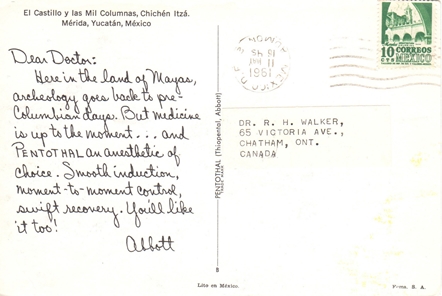 El Castillo y las Mil Columnas, Chichén Itzá.
Mérida, Yucatán, México
Dear Doctor:
Here in the land of Mayas,
archeology goes back to pre-
Columbian days. But medicine
is up to the moment... and
PENTOTHAL an anesthetic of
choice. Smooth induction,
moment-to-moment control,
swift recovery. You'll like
it too!
Abbott
PENTOTHAL (Thiopental, Abbott)
8
Lito en México.
18 45
11
1961
10
CORREOS
MEXICO
DR. R. H. WALKER,
65 VICTORIA AVE.,
CHATHAM, ONT.
CANADA
S. A.